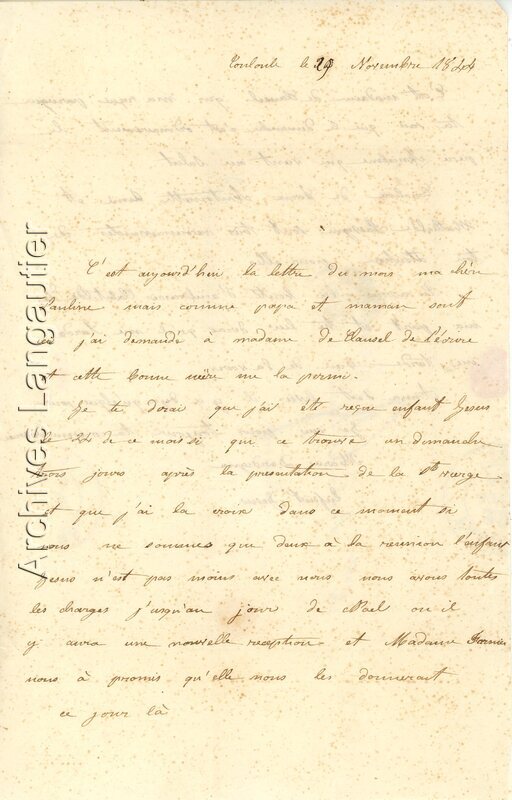 Toulouse le 29 Novembre 1844
C'est aujourd'hui la lettre du mois ma chère
Pauline mais comme papa et maman sont
ici j'ai demandé à madame de Clausel de t'écrire
et cette bonne mère me la permi.
Je te dirai que j'ai été reçue enfant Jesus
le 24 de ce mois si que ce trouve un dimanche
trois jours après la presentation de la Ste vierge
et que j'ai la croix dans ce moment si
nous ne sommes que deux à la réunion l'enfant
Jesus n'est pas moins avec nous nous avons toutes
les charges j'usqu'au jour de Noel ou il
y aura une nouvelle reception et Madame Garnier
nous à promis qu'elle nous les donnerait
ce jour là
Archives Langautier